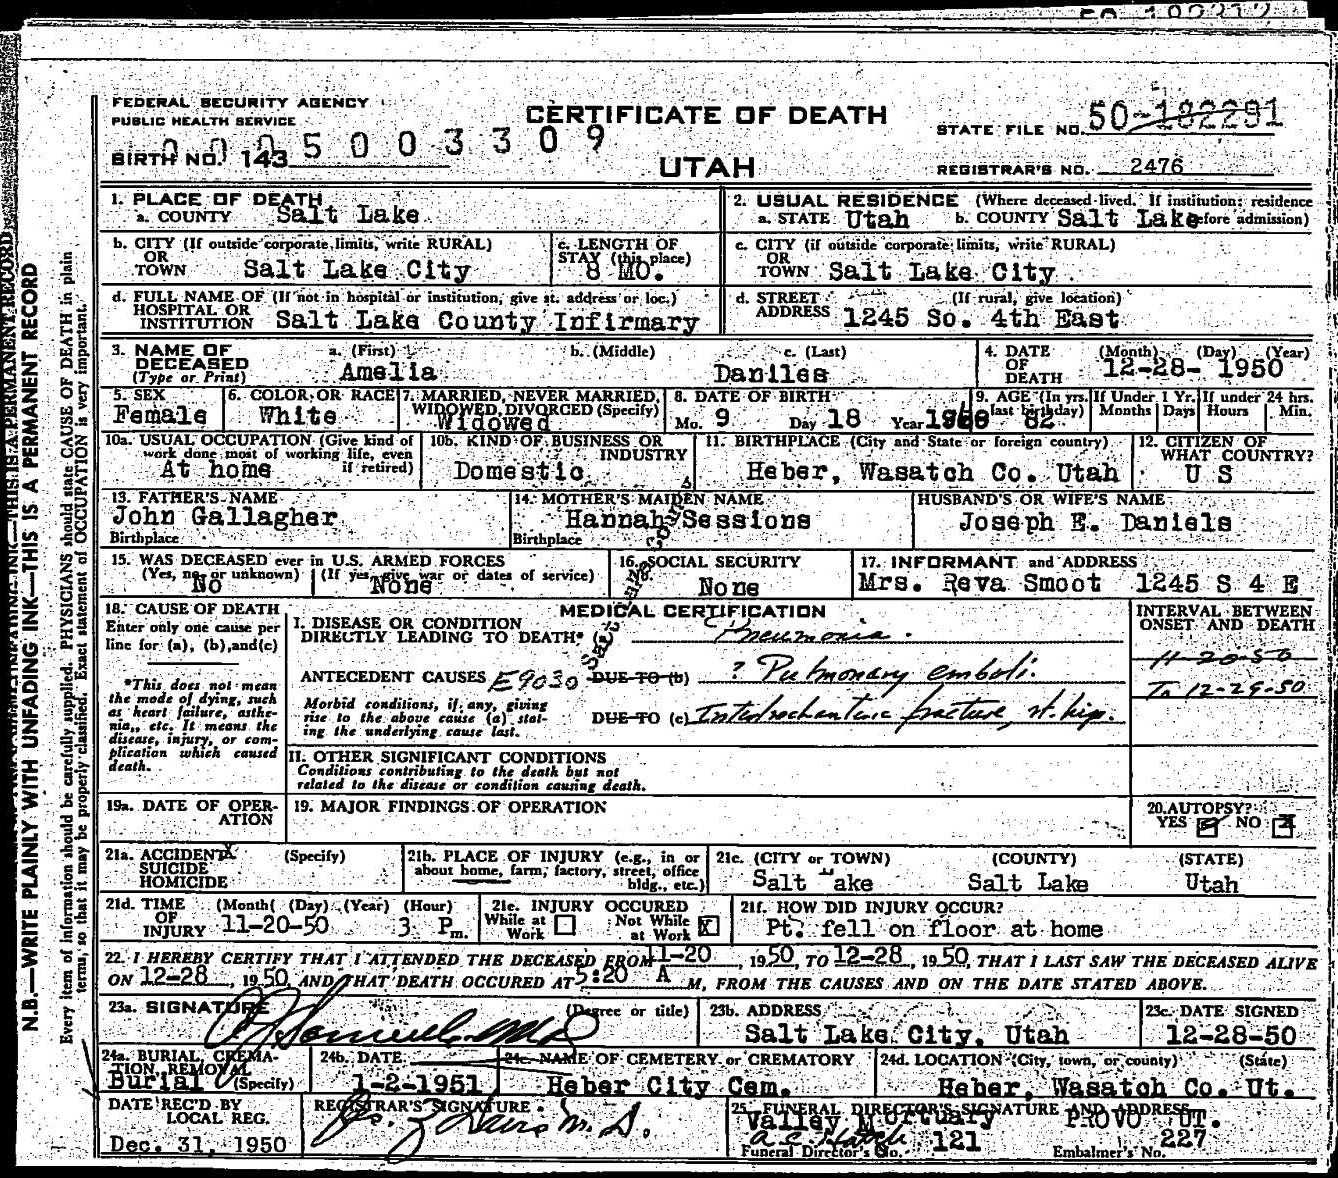 FEDERAL SECURITY AGENCY
PUBLIC HEALTH SERVICE
CERTIFICATE OF DEATH
UTAH
BIRTH NO. 143
0005003309
STATE FILE NO. 50-182291
REGISTRAR'S NO. 2476
1. PLACE OF DEATH
a. COUNTY Salt Lake
2. USUAL RESIDENCE (Where deceased lived. If institution: residence
a. STATE Utah b. COUNTY Salt Lake before admission)
b. CITY (If outside corporate limits, write RURAL)
OR
TOWN Salt Lake City
c. LENGTH OF
STAY (this place)
8 MO.
c. CITY (if outside corporate limits, write RURAL)
OR
TOWN Salt Lake City
d. FULL NAME OF (If not in hospital or institution, give st. address or loc.)
HOSPITAL OR
INSTITUTION Salt Lake County Infirmary
d. STREET (If rural, give location)
ADDRESS 1245 So. 4th East
3. NAME OF a. (First) b. (Middle) c. (Last)
DECEASED
(Type or Print) Amelia Daniles
4. DATE (Month) (Day) (Year)
OF
DEATH 12-28- 1950
5. SEX
Female
6. COLOR OR RACE
White
7. MARRIED, NEVER MARRIED,
WIDOWED, DIVORCED (Specify)
Widowed
8. DATE OF BIRTH
Mo. 9 Day 18 Year
9. AGE (In yrs. last birthday)
82
If Under 1 Yr.
Months Days
If under 24 hrs.
Hours Min.
10a. USUAL OCCUPATION (Give kind of
work done most of working life, even
if retired)
At home
10b. KIND OF BUSINESS OR
INDUSTRY
Domestic
11. BIRTHPLACE (City and State or foreign country)
Heber, Wasatch Co. Utah
12. CITIZEN OF
WHAT COUNTRY?
U S
13. FATHER'S NAME
John Gallagher
Birthplace
14. MOTHER'S MAIDEN NAME
Hannah Sessions
Birthplace
HUSBAND'S OR WIFE'S NAME
Joseph E. Daniels
15. WAS DECEASED ever in U.S. ARMED FORCES
(Yes, no, or unknown) (If yes, give war or dates of service)
No None
16. SOCIAL SECURITY
None
17. INFORMANT and ADDRESS
Mrs. Reva Smoot 1245 S 4 E
18. CAUSE OF DEATH
Enter only one cause per
line for (a), (b), and (c)
*This does not mean
the mode of dying, such
as heart failure, asthe-
nia,, etc. It means the
disease, injury, or com-
plication which caused
death.
MEDICAL CERTIFICATION
I. DISEASE OR CONDITION
DIRECTLY LEADING TO DEATH* Pneumonia.
ANTECEDENT CAUSES E9030 DUE TO (b) ? Pulmonary emboli.
Morbid conditions, if any, giving
rise to the above cause (a) stat-
ing the underlying cause last.
DUE TO (c) Intertrochanteric fracture, rt. hip.
INTERVAL BETWEEN
ONSET AND DEATH
11-20-50
To 12-29-50
II. OTHER SIGNIFICANT CONDITIONS
Conditions contributing to the death but not
related to the disease or condition causing death.
19a. DATE OF OPER-
ATION
19. MAJOR FINDINGS OF OPERATION
20. AUTOPSY?
YES NO
21a. ACCIDENT X (Specify)
SUICIDE
HOMICIDE
21b. PLACE OF INJURY (e.g., in or
about home, farm, factory, street, office
bldg., etc.)
21c. (CITY or TOWN) (COUNTY) (STATE)
Salt Lake Salt Lake Utah
21d. TIME (Month( (Day) (Year) (Hour)
OF
INJURY 11-20-50 3 P m.
21e. INJURY OCCURED
While at Work Not While at Work X
21f. HOW DID INJURY OCCUR?
Pt. fell on floor at home
22. I HEREBY CERTIFY THAT I ATTENDED THE DECEASED FROM 11-20, 1950, TO 12-28, 1950, THAT I LAST SAW THE DECEASED ALIVE
ON 12-28, 1950, AND THAT DEATH OCCURED AT 5:20 A M, FROM THE CAUSES AND ON THE DATE STATED ABOVE.
23a. SIGNATURE (Degree or title)
23b. ADDRESS
Salt Lake City, Utah
23c. DATE SIGNED
12-28-50
24a. BURIAL, CREMA-
TION, REMOVAL
Burial (Specify)
24b. DATE
1-2-1951
24c. NAME OF CEMETERY or CREMATORY
Heber City Cem.
24d. LOCATION (City, town, or county) (State)
Heber, Wasatch Co. Ut.
DATE REC'D BY
LOCAL REG.
Dec. 31, 1950
REGISTRAR'S SIGNATURE
25. FUNERAL DIRECTOR'S SIGNATURE AND ADDRESS
Valley Mortuary PROVO UT.
121 227
Funeral Director's No. Embalmer's No.
N.B.—WRITE PLAINLY WITH UNFADING INK—THIS IS A PERMANENT RECORD
Every item of information should be carefully supplied. PHYSICIANS should state CAUSE OF DEATH in plain
terms, so that it may be properly classified. Exact statement of OCCUPATION is very important.